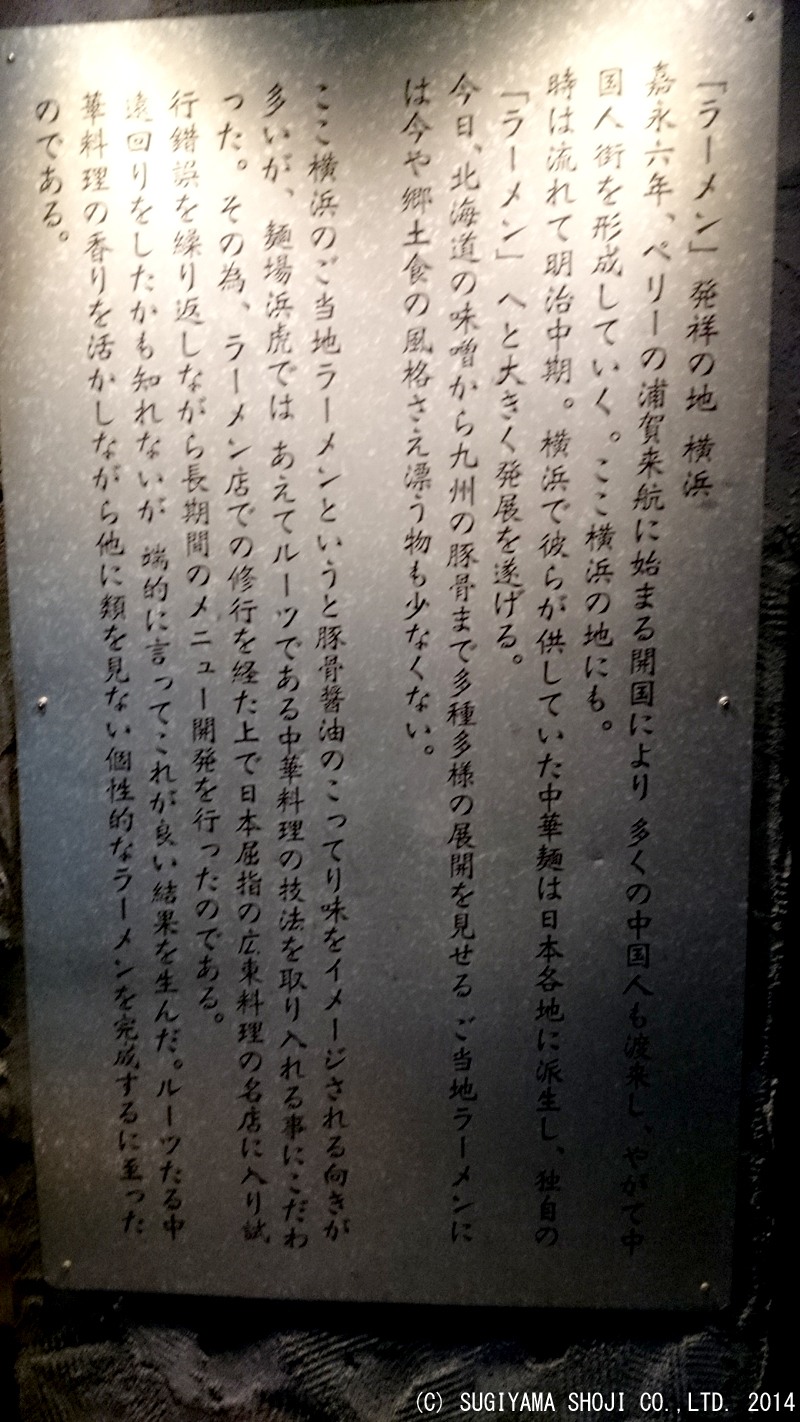 「ラーメン」発祥の地 横浜
嘉永六年、ペリーの浦賀来航に始まる開国により 多くの中国人も渡来し、やがて中
国人街を形成していく。ここ横浜の地にも。
時は流れて明治中期。横浜で彼らが供していた中華麺は日本各地に派生し、独自の
「ラーメン」へと大きく発展を遂げる。
今日、北海道の味噌から九州の豚骨まで多種多様の展開を見せる ご当地ラーメンに
は今や郷土食の風格さえ漂う物も少なくない。
ここ横浜のご当地ラーメンというと豚骨醤油のこってり味をイメージされる向きが
多いが、麺場浜虎では あえてルーツである中華料理の技法を取り入れる事にこだわ
った。その為、ラーメン店での修行を経た上で日本屈指の広東料理の名店に入り試
行錯誤を繰り返しながら長期間のメニュー開発を行ったのである。
遠回りをしたかも知れないが 端的に言ってこれが良い結果を生んだ。ルーツたる中
華料理の香りを活かしながら他に類を見ない個性的なラーメンを完成するに至った
のである。
(C) SUGIYAMA SHOJI CO.,LTD. 2014